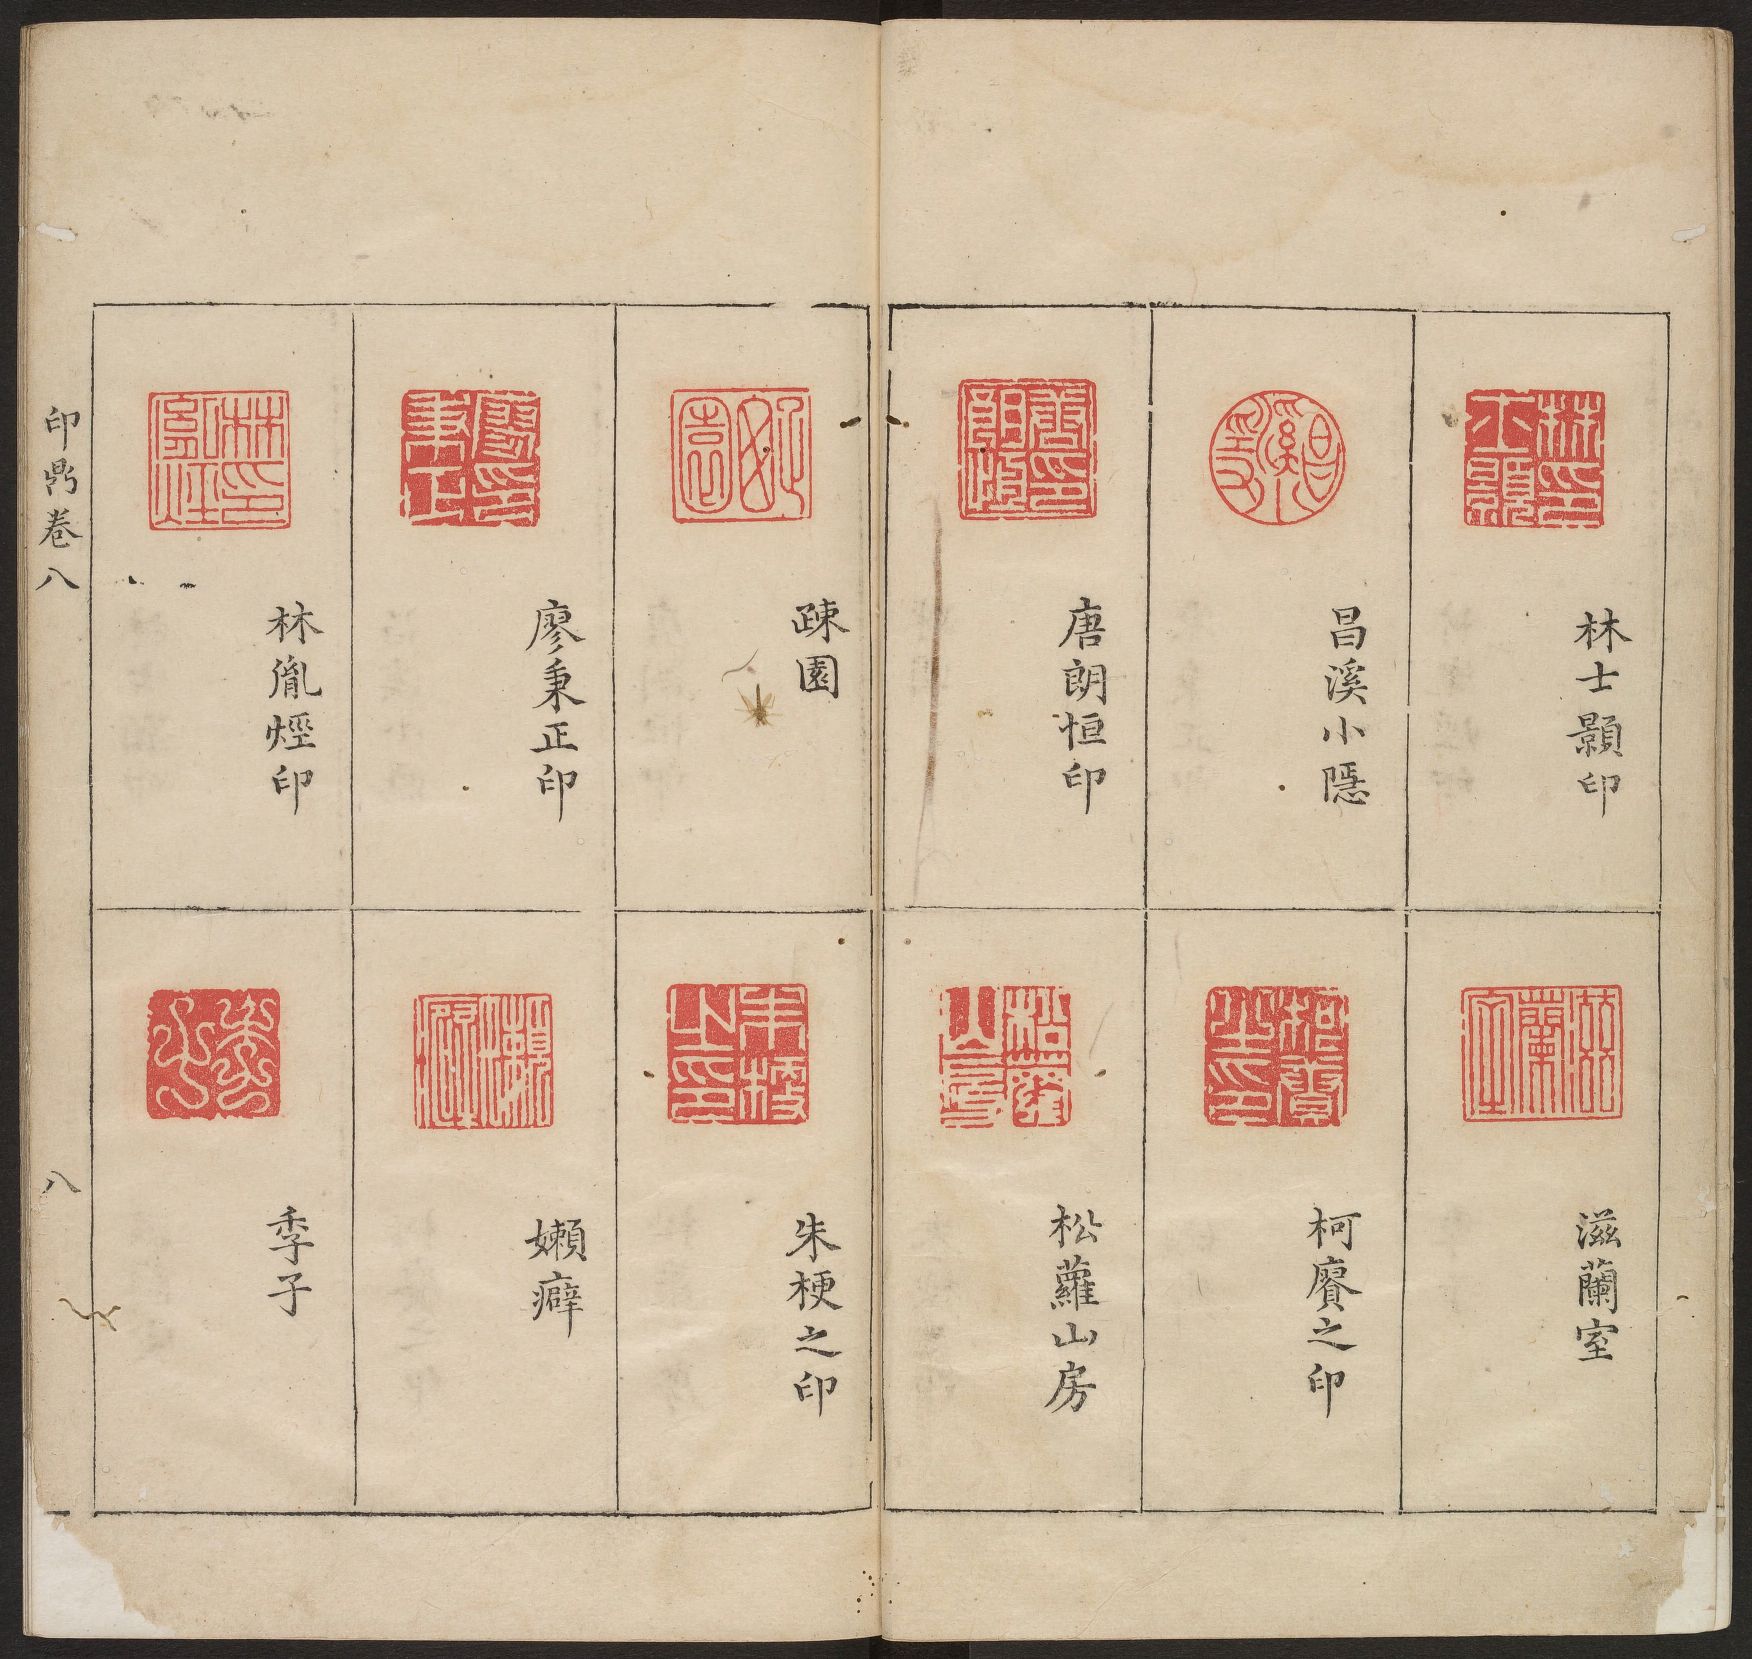 林士顥印
昌溪小隱
唐朗恒印
滋蘭室
柯賡之印
松蘿山房
疎園
廖秉正印
林胤烴印
朱梗之印
嬾癖
季子
印鼎卷八
八